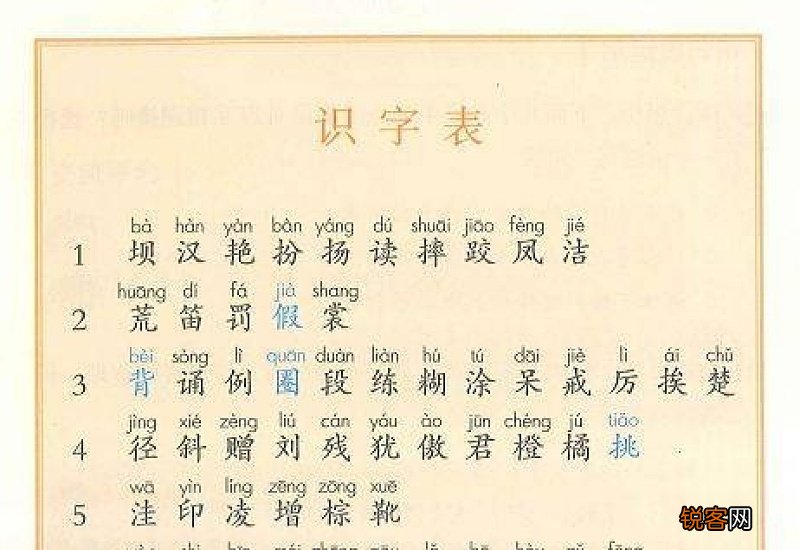 识字表
bà hàn yàn bàn yáng dú shuāi jiāo fèng jié
1 坝 汉 艳 扮 扬 读 摔 跤 凤 洁
huāng dí fá jià shang
2 荒 笛 罚 假 裳
bèi sòng lì quān duàn liàn hú tú dāi jiè lì ái chǔ
3 背 诵 例 圈 段 练 糊 涂 呆 戒 厉 挨 楚
jìng xié zèng liú cán yóu ào jūn chéng jú tiāo
4 径 斜 赠 刘 残 犹 傲 君 橙 橘 挑
wā yìn líng zēng zōng xuē
5 洼 印 凌 增 棕 靴
锐客网